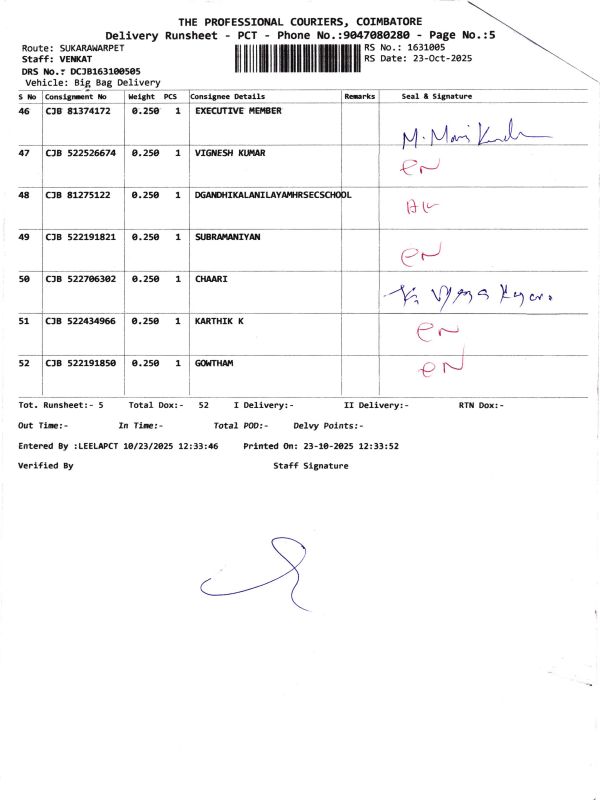 THE PROFESSIONAL COURIERS, COIMBATORE
Delivery Runsheet - PCT - Phone No.:9047080280 - Page No.:5
Route: SUKARAWARPET RS No.: 1631005
Staff: VENKAT RS Date: 23-Oct-2025
DRS No.: DCJB163100505
Vehicle: Big Bag Delivery
S No Consignment No Weight PCS Consignee Details Remarks Seal & Signature
46 CJB 81374172 0.250 1 EXECUTIVE MEMBER
47 CJB 522526674 0.250 1 VIGNESH KUMAR EN
48 CJB 81275122 0.250 1 DGANDHIKALANILAYAMHRSECSCHOOL
49 CJB 522191821 0.250 1 SUBRAMANIYAN EN
50 CJB 522706302 0.250 1 CHAARI
51 CJB 522434966 0.250 1 KARTHIK K EN
52 CJB 522191850 0.250 1 GOWTHAM EN
Tot. Runsheet:- 5 Total Dox:- 52 I Delivery:- II Delivery:- RTN Dox:-
Out Time:- In Time:- Total POD:- Delvy Points:-
Entered By :LEELAPCT 10/23/2025 12:33:46 Printed On: 23-10-2025 12:33:52
Verified By Staff Signature